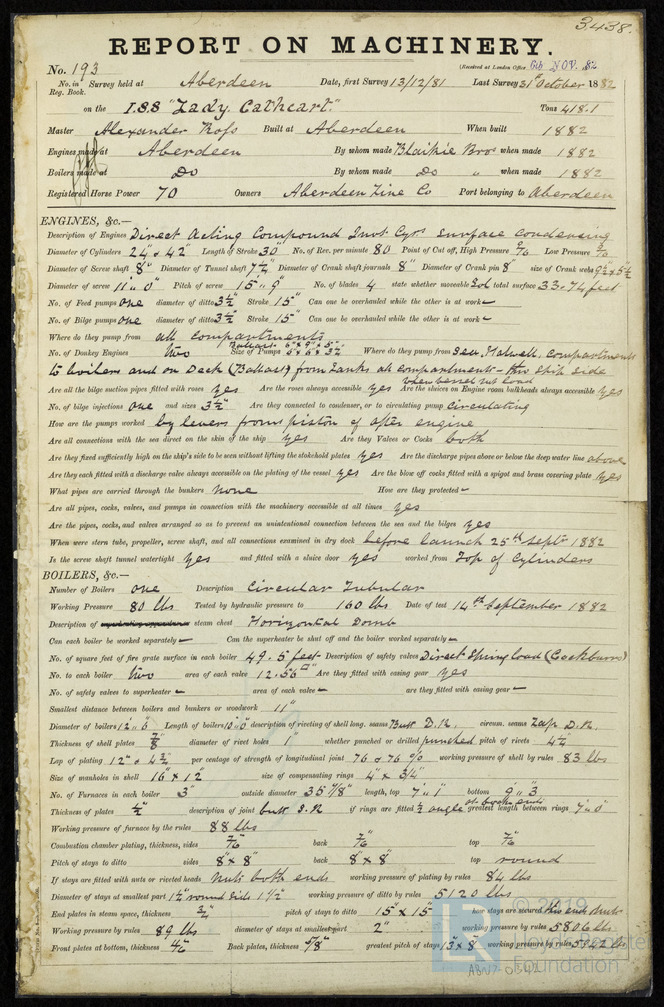 3438.
REPORT ON MACHINERY.
No. 193 (Received at London Office 6th NOV. 82
No. in Survey held at Aberdeen Date, first Survey 13/12/81 Last Survey 31st October 1882
Reg. Book.
on the I.S.S "Lady Cathcart." Tons 418.1
Master Alexander Ross Built at Aberdeen When built 1882
Engines made at Aberdeen By whom made Blaikie Bros when made 1882
Boilers made at Do By whom made Do " when made 1882
Registered Horse Power 70 Owners Aberdeen Line Co Port belonging to Aberdeen
ENGINES, &c.—
Description of Engines Direct Acting Compound Invt Cyrs Surface condensing
Diameter of Cylinders 24" & 42" Length of Stroke 30" No. of Rev. per minute 80 Point of Cut off, High Pressure Low Pressure
Diameter of Screw shaft 8" Diameter of Tunnel shaft 7¼" Diameter of Crank shaft journals 8" Diameter of Crank pin 8" size of Crank webs 9½ x 5½
Diameter of screw 11" 0" Pitch of screw 15" 9" No. of blades 4 state whether moveable Sol total surface 33.74 feet
No. of Feed pumps one diameter of ditto 3½" Stroke 15" Can one be overhauled while the other is at work –
No. of Bilge pumps one diameter of ditto 3½" Stroke 15" Can one be overhauled while the other is at work –
Where do they pump from all compartments
No. of Donkey Engines two Size of Pumps Where do they pump from Sea, Hotwell, compartments
to boilers and on Deck (Ballast) from tanks all compartments – thro ship side
Are all the bilge suction pipes fitted with roses yes Are the roses always accessible yes Are the sluices on Engine room bulkheads always accessible yes
No. of bilge injections one and sizes 3½" Are they connected to condenser, or to circulating pump circulating
How are the pumps worked by levers from piston of after engine
Are all connections with the sea direct on the skin of the ship yes Are they Valves or Cocks both
Are they fixed sufficiently high on the ship's side to be seen without lifting the stokehold plates yes Are the discharge pipes above or below the deep water line above
Are they each fitted with a discharge valve always accessible on the plating of the vessel yes Are the blow off cocks fitted with a spigot and brass covering plate yes
What pipes are carried through the bunkers none How are they protected –
Are all pipes, cocks, valves, and pumps in connection with the machinery accessible at all times yes
Are the pipes, cocks, and valves arranged so as to prevent an unintentional connection between the sea and the bilges yes
When were stern tube, propeller, screw shaft, and all connections examined in dry dock before launch 25th Septr 1882
Is the screw shaft tunnel watertight yes and fitted with a sluice door yes worked from Top of Cylinders
BOILERS, &c.—
Number of Boilers one Description Circular Tubular
Working Pressure 80 lbs Tested by hydraulic pressure to 160 lbs Date of test 14th September 1882
Description of steam chest Horizontal Domb
Can each boiler be worked separately – Can the superheater be shut off and the boiler worked separately –
No. of square feet of fire grate surface in each boiler 49.5 feet Description of safety valves Direct Spring load (Cockburn)
No. to each boiler two area of each valve 12.56 □" Are they fitted with easing gear yes
No. of safety valves to superheater – area of each valve – are they fitted with easing gear –
Smallest distance between boilers and bunkers or woodwork 11"
Diameter of boilers 12" 6 Length of boilers 10" 0" description of riveting of shell long. seams Butt D.R. circum. seams Lap D.R.
Thickness of shell plates ⅞" diameter of rivet holes 1" whether punched or drilled punched pitch of rivets 4¼"
Lap of plating 12" & 4¾" per centage of strength of longitudinal joint 76 & 76 % working pressure of shell by rules 83 lbs
Size of manhole in shell 16" x 12" size of compensating rings 4" x ¾"
No. of Furnaces in each boiler 3" outside diameter 35⅞" length, top 7" 1" bottom 9" 3
Thickness of plates ½" description of joint butt S.R if rings are fitted ½ angle at both ends greatest length between rings 7" 0"
Working pressure of furnace by the rules 88 lbs
Combustion chamber plating, thickness, sides 7/16" back 7/16" top 7/16"
Pitch of stays to ditto sides 8" x 8" back 8" x 8" top round
If stays are fitted with nuts or riveted heads Nuts both ends working pressure of plating by rules 84 lbs
Diameter of stays at smallest part 1½" round Sides 1½" working pressure of ditto by rules 5120 lbs
End plates in steam space, thickness ¾" pitch of stays to ditto 15" x 15" how stays are secured thro ends &nuts
Working pressure by rules 89 lbs diameter of stays at smallest part 2" working pressure by rules 5806 lbs
Front plates at bottom, thickness Back plates, thickness ⅝" greatest pitch of stays 13" x 8" working pressure by rules 5942 lbs
© 2019
LR
Lloyd's Register
Foundation